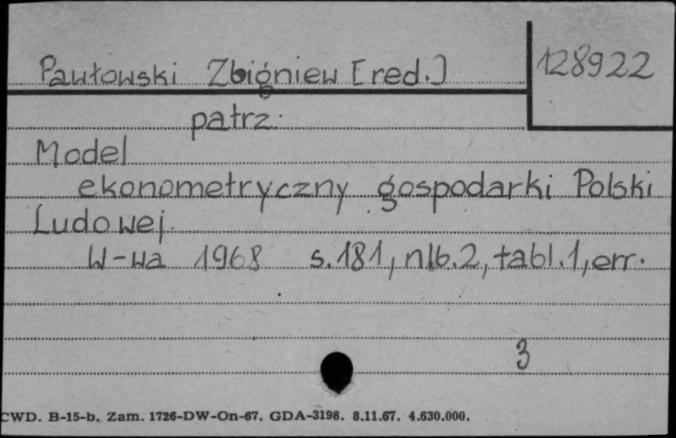 Pawłowski Zbigniew [red.]
128922
patrz:
Model
ekonometryczny gospodarki Polski
Ludowej.
W-wa 1968 s.181, nlb.2, tabl.1, err.
3
CWD. B-15-b. Zam. 1726-DW-On-67. GDA-3198. 8.11.67. 4.630.000.